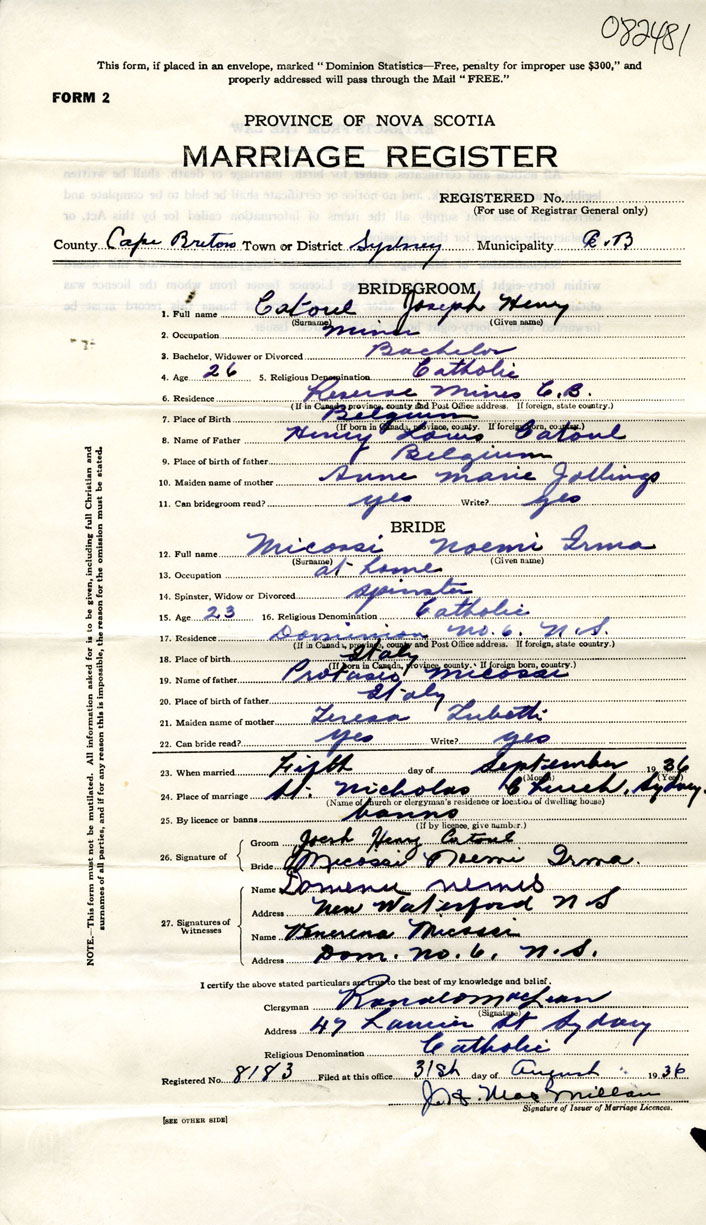 082481
This form, if placed in an envelope, marked "Dominion Statistics—Free, penalty for improper use $300," and
properly addressed will pass through the Mail "FREE."
FORM 2
PROVINCE OF NOVA SCOTIA
MARRIAGE REGISTER
REGISTERED No.
(For use of Registrar General only)
County Cape Breton Town or District Sydney Municipality C.B
BRIDEGROOM
1. Full name Catoul Joseph Henry
(Surname) (Given name)
2. Occupation Miner
3. Bachelor, Widower or Divorced Bachelor
4. Age 26 5. Religious Denomination Catholic
6. Residence Reserve Mines C.B.
(If in Canada, province, county and Post Office address. If foreign, state country.)
7. Place of Birth Belgium
(If born in Canada, province, county. If foreign born, country.)
8. Name of Father Henry Louis Catoul
9. Place of birth of father Belgium
10. Maiden name of mother Anne Marie Jollings
11. Can bridegroom read? yes Write? yes
BRIDE
12. Full name Micossi Noemi Irma
(Surname) (Given name)
13. Occupation at home
14. Spinster, Widow or Divorced spinster
15. Age 23 16. Religious Denomination Catholic
17. Residence Dominion No. 6, N.S.
(If in Canada, province, county and Post Office address. If foreign, state country.)
18. Place of birth Italy
(If born in Canada, province, county. If foreign born, country.)
19. Name of father Protasio Micossi
20. Place of birth of father Italy
21. Maiden name of mother Teresa
22. Can bride read? yes Write? yes
23. When married Fifth day of September 1936
(Month) (Year)
24. Place of marriage St. Nicholas Church, Sydney.
(Name of church or clergyman's residence or location of dwelling house)
25. By licence or banns banns
(If by licence, give number.)
26. Signature of Groom Joseh Henry Catoul
Bride Micossi Noemi Irma.
27. Signatures of Witnesses Name
Address New Waterford N S
Name Venerina Micossi
Address Dom. No. 6, N.S.
I certify the above stated particulars are true to the best of my knowledge and belief.
Clergyman Ronald MacLean
(Signature)
Address 47 Laurier St Sydney
Religious Denomination Catholic
Registered No. 8183 Filed at this office 31st day of August 1936
J. MacMillan
Signature of Issuer of Marriage Licences.
[SEE OTHER SIDE]
NOTE.—This form must not be mutilated. All information asked for is to be given, including full Christian and
surnames of all parties, and if for any reason this is impossible, the reason for the omission must be stated.